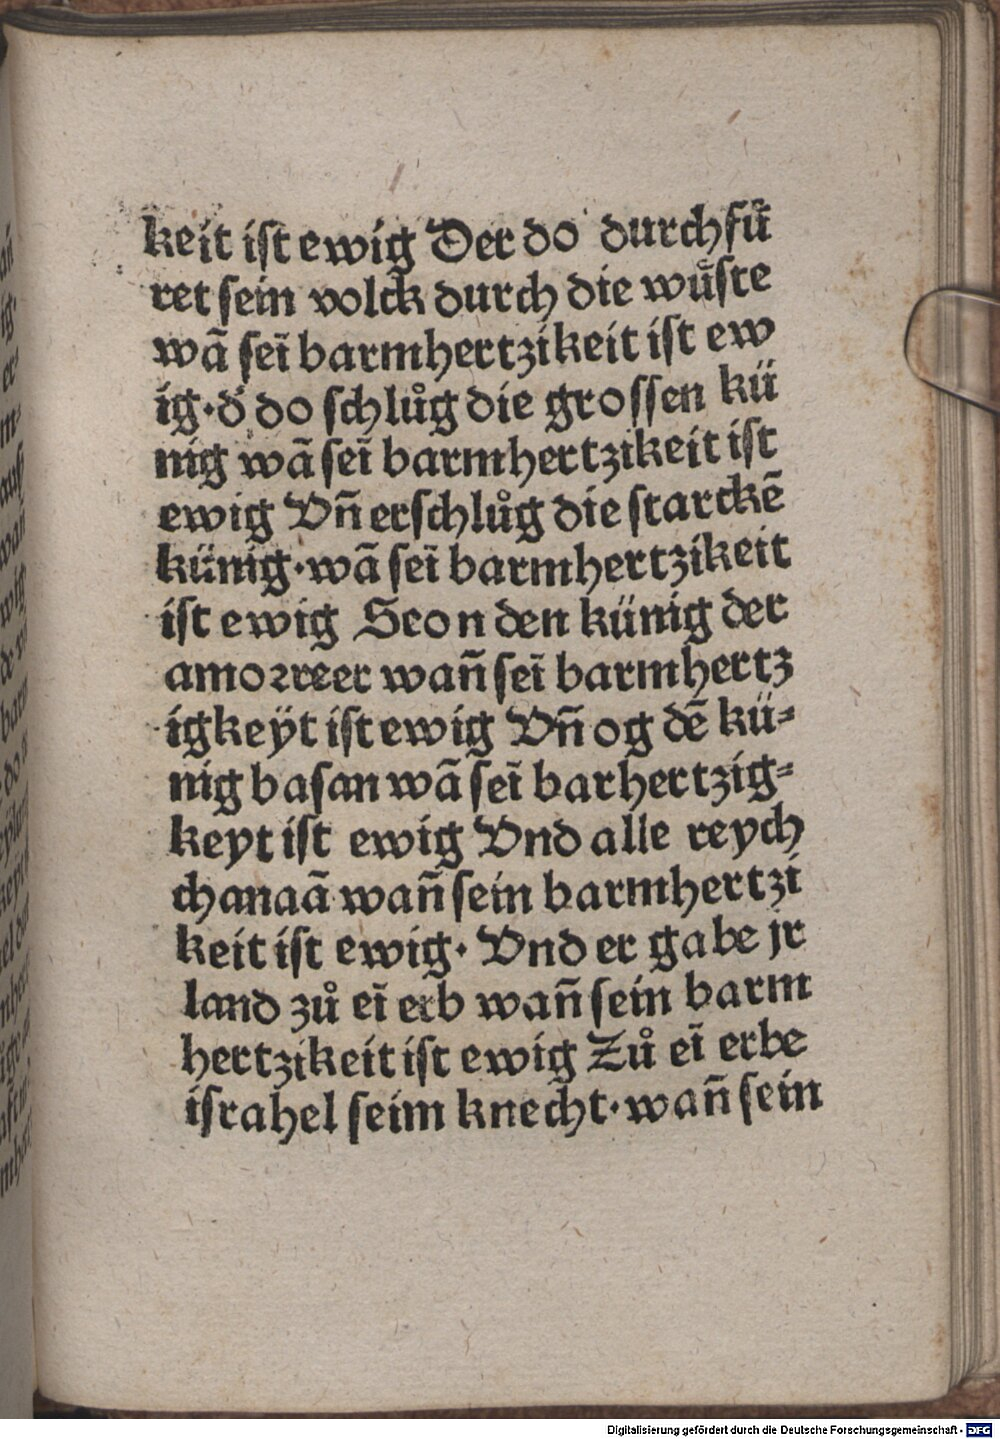 keit ist ewig Der do durchfuͤ
ret sein volck durch die wuͤste
wã seĩ barmhertzikeit ist ew
ig · d' do schlůg die grossen kü
nig wã seĩ barmhertzikeit ist
ewig Vñ erschlůg die starckẽ
künig · wã seĩ barmhertzikeit
ist ewig Seon den künig der
amorreer wañ seĩ barmhertz
igkeÿt ist ewig Vñ og dẽ kü⸗
nig basan wã seĩ barhertzig⸗
keyt ist ewig Vnd alle reych
chanaã wañ sein barmhertzi
keit ist ewig · Vnd er gabe jr
land zů eĩ erb wañ sein barm
hertzikeit ist ewig Zů eĩ erbe
israhel seim knecht · wañ sein
Digitalisierung gefördert durch die Deutsche Forschungsgemeinschaft - DFG